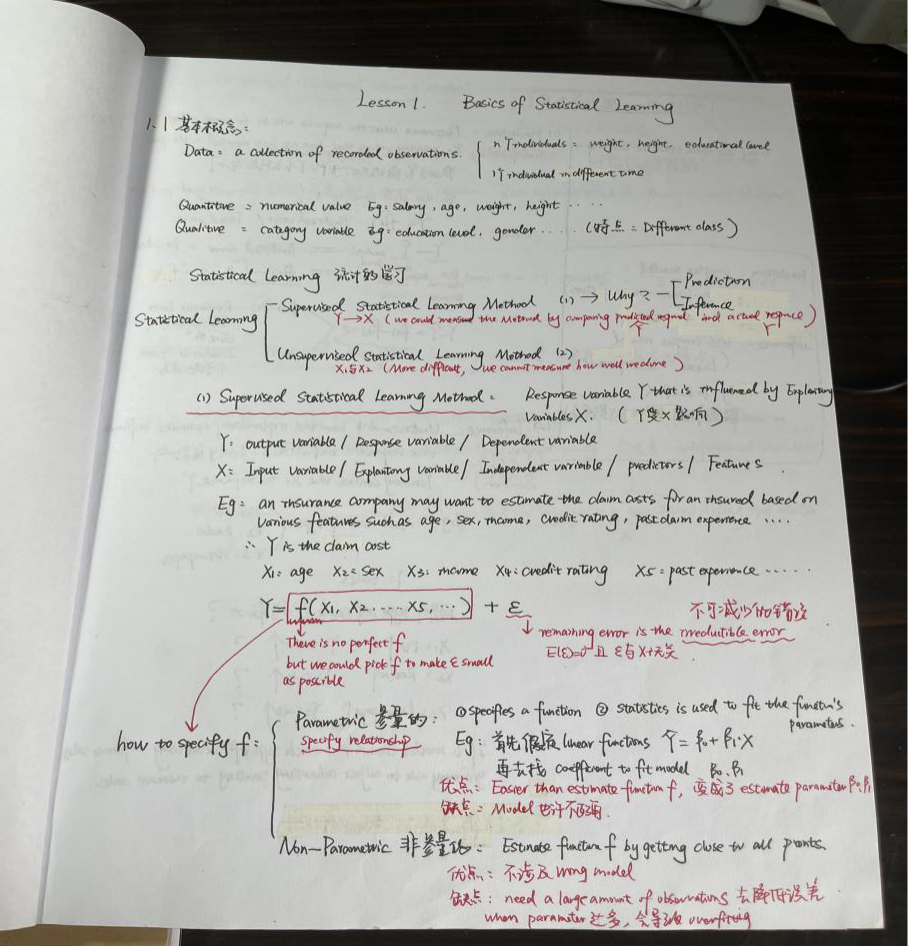 Lesson 1. Basics of Statistical Learning
1.1 基本概念:
Data = a collection of recorded observations. { n个individuals = weight, height, educational level
1个individual in different time
Quantitive = numerical value Eg: salary, age, weight, height ....
Qualitive = category variable Eg: education level, gender ..... (特点 = Different class)
Statistical Learning 统计的学习
Statistical Learning
Supervised Statistical Learning Method (1) → Why? - Prediction
Inference
Y → X (we could measure the Method by comparing predicted and actual
Ŷ Y
Unsupervised Statistical Learning Method (2)
X1与X2 (More difficult, we cannot measure how well we done)
(1) Supervised Statistical Learning Method = Response variable Y that is influenced by
Variables X. (Y受X影响)
Y: output variable / Response variable / Dependent variable
X = Input variable / variable / Independent variable / predictors / Features.
Eg: an insurance company may want to estimate the claim costs for an insured based on
various features such as age, sex, income, credit rating, past claim experience ....
∴ Y is the claim cost
X1= age X2= sex X3: income X4: credit rating X5 = past experience ......
Y = f(X1, X2 ..... X5, ...) + ε
不可减少的错误
There is no perfect f
but we could pick f to make ε small
as possible
remaining error is the irreductible error
E(ε)=0 且 ε与X无关
how to specify f:
Parametric 参量的: ① specifies a function ② statistics is used to fit the function's
parameters.
specify relationship
Eg: 首先假设 linear functions Ŷ = β0 + β1·X
再去找 coefficient to fit model β0. β1
优点: Easier than estimate function f, 变成了 estimate parameter β0.β1
缺点: Model 也许不
Non-Parametric 非参量化: Estimate function f by getting close to all points.
优点: 不涉及 wrong model
缺点: need a large amount of observations 去降低误差
when parameter 过多, 会导致 overfitting